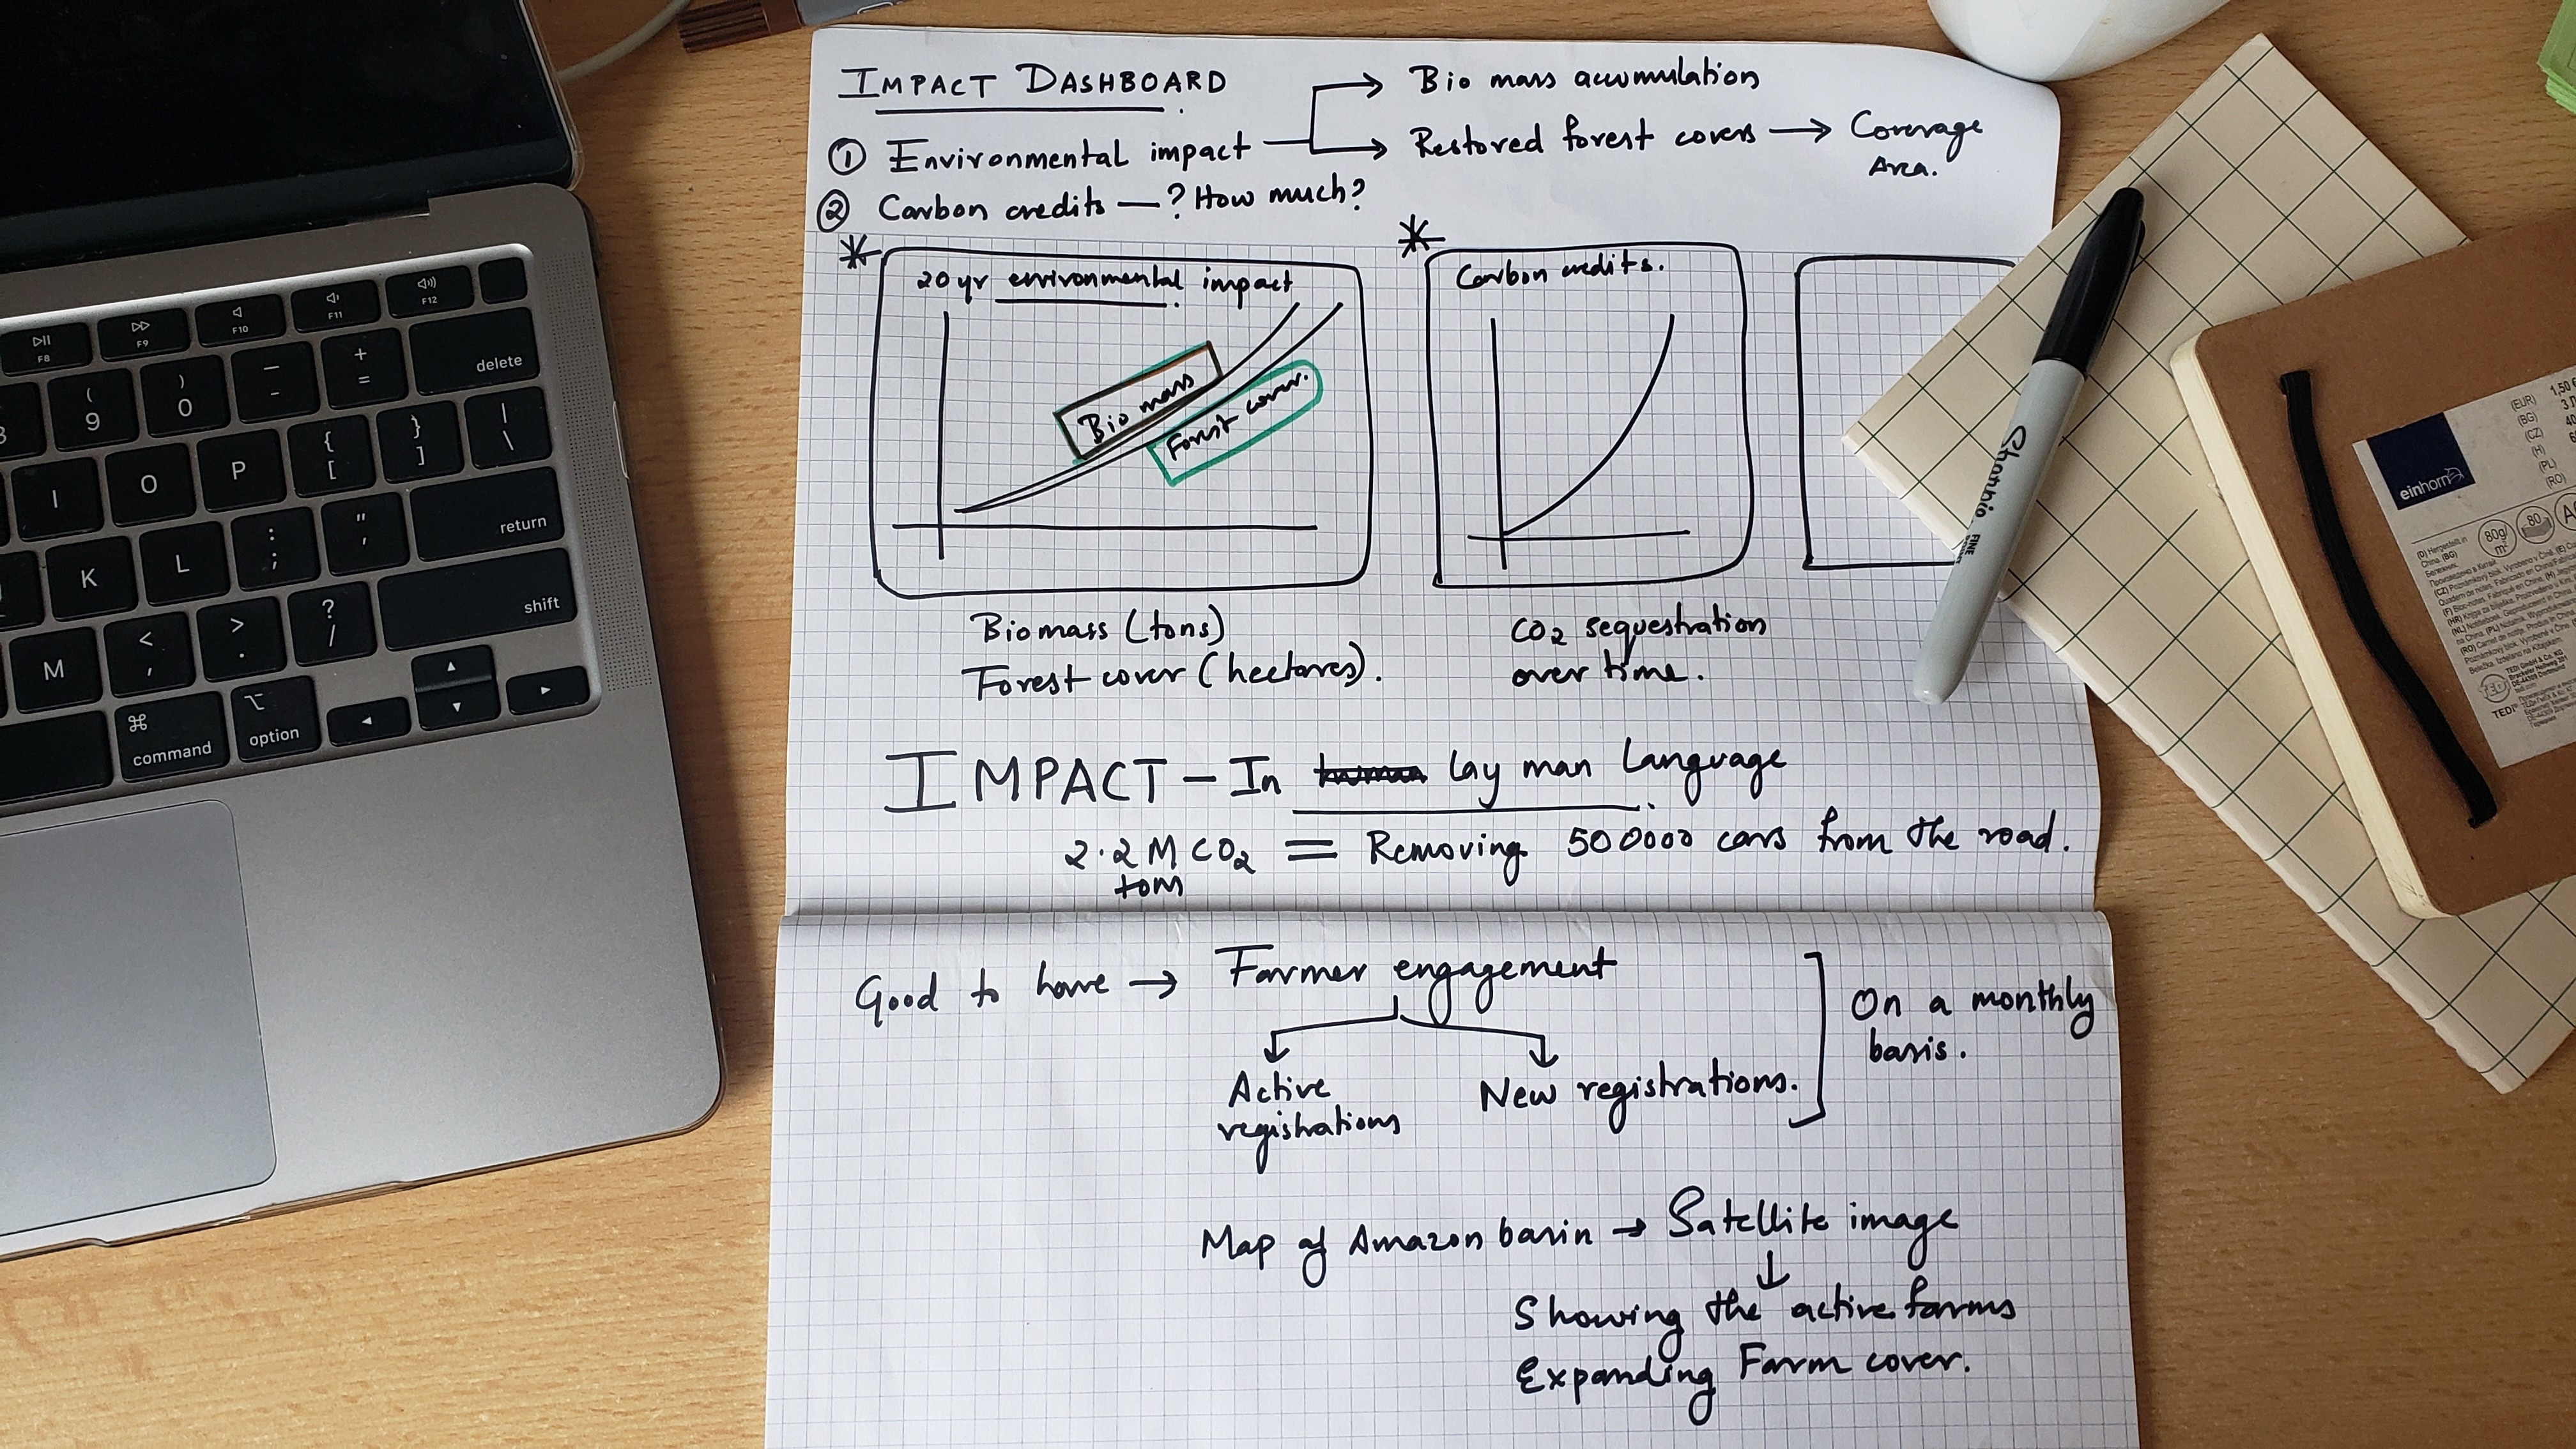 IMPACT DASHBOARD
Bio mass accumulation
① Environmental impact
Restored forest covers → Coverage
Area.
② Carbon credits — ? How much?
* 20 yr environmental impact
Bio mass
Forest cover.
* Carbon credits.
Biomass (tons)
Forest cover (hectares).
CO₂ sequestration
over time.
IMPACT - In lay man language
2.2 M CO₂ = Removing 500000 cars from the road.
tons
Good to have → Farmer engagement
On a monthly
basis.
Active
registrations
New registrations.
Map of Amazon basin → Satellite image
Showing the active farms
Expanding Farm cover.
F8
F9
F10
F11
F12
( 9
) 0
_ -
+ =
delete
I
O
P
{ [
} ]
| \
K
L
: ;
" '
return
M
< ,
> .
? /
shift
command
option
Sharpie
FINE
einhorn
(EUR)
(BG)
(CZ)
(H)
(PL)
(RO)
80g/
m²
80